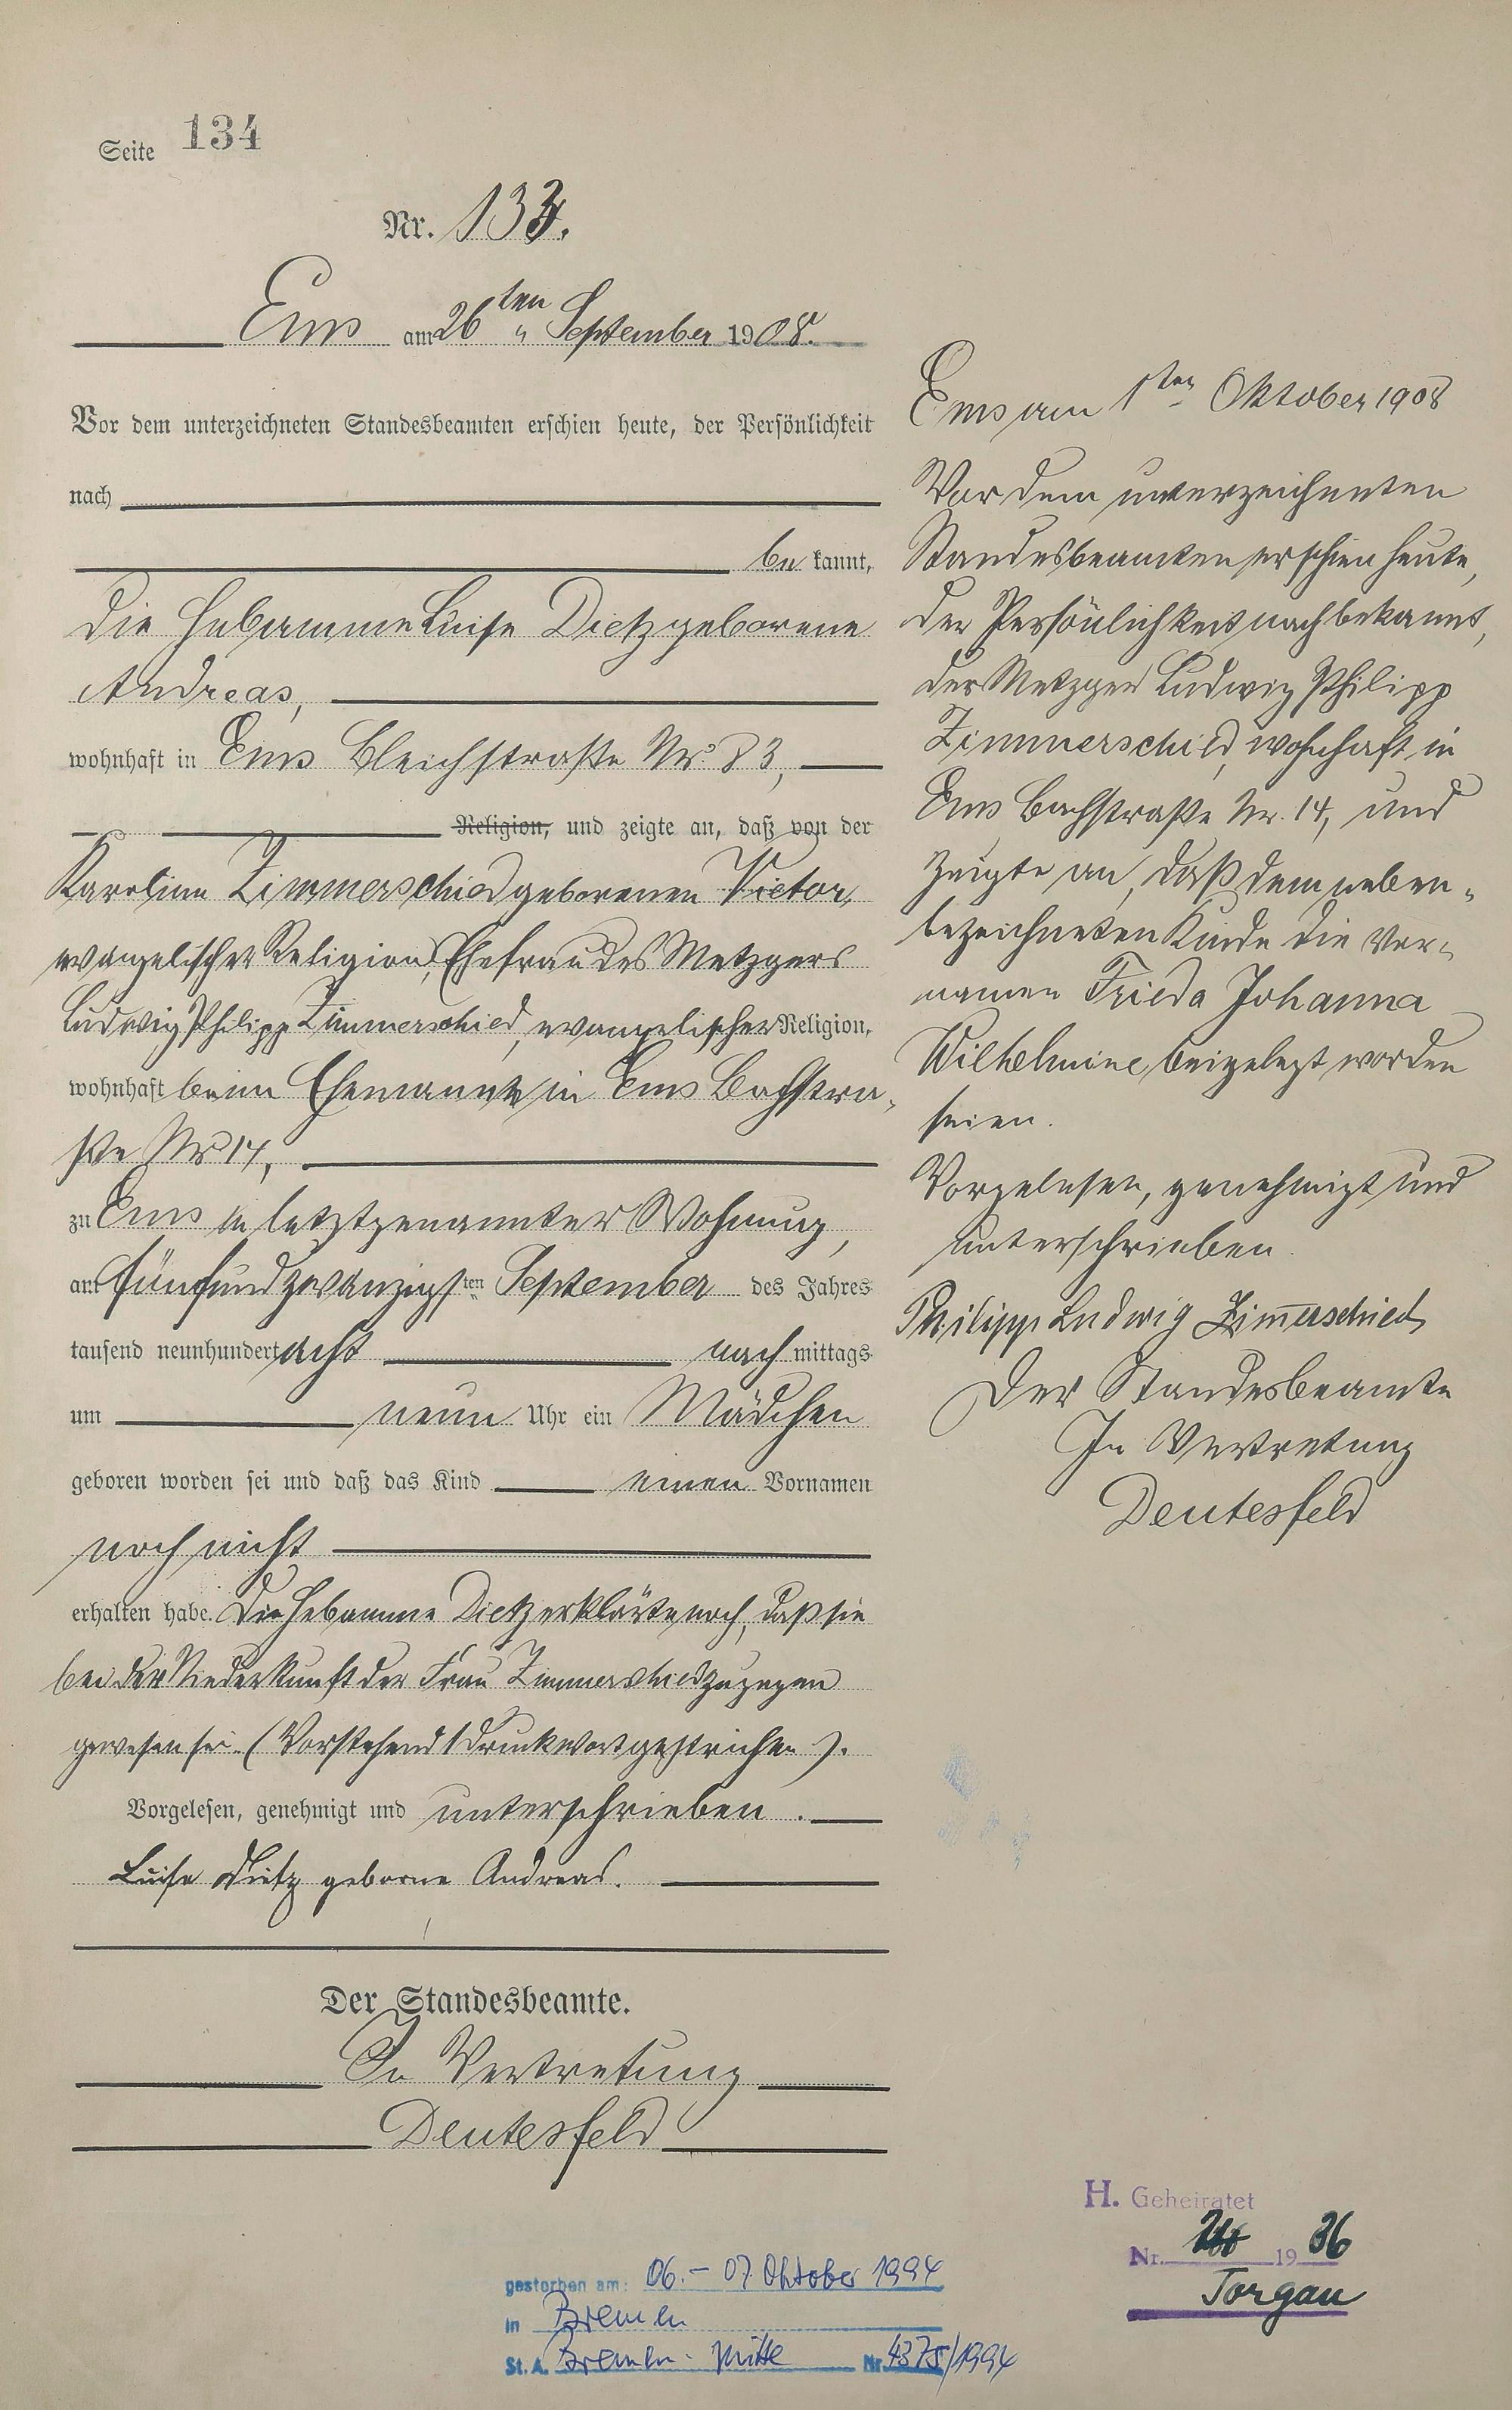 Seite 134
Nr. 133.
Ems am 26ten September 1908.
Vor dem unterzeichneten Standesbeamten erschien heute, der Persönlichkeit
nach
be kannt,
die Hebamme Luise Dietz geborene
Andreas,
wohnhaft in Ems Bleichstraße Nr. 33,
Religion, und zeigte an, daß von der
Karoline Zimmerschied geborenen Victor,
evangelischer Religion, Ehefrau des Metzgers
Ludwig Philipp Zimmerschied, evangelischer Religion,
wohnhaft beim Ehemanne in Ems Bachstra-
ße Nr 14,
zu Ems in letztgenannter Wohnung,
am fünfundzwanzigsten September des Jahres
tausend neunhundert acht nach mittags
um neun Uhr ein Mädchen
geboren worden sei und daß das Kind einen Vornamen
noch nicht
erhalten habe. Die Hebamme Dietz erklärte noch, daß sie
bei der Niederkunft der Frau Zimmerschied zugegen
gewesen sei. (Vorstehend 1 Druckwort gestrichen).
Vorgelesen, genehmigt und unterschrieben.
Luise Dietz geborne Andreas.
Der Standesbeamte.
In Vertretung
Deutesfeld
Ems am 1ten Oktober 1908
Vor dem unterzeichneten
Standesbeamten erschien heute,
der Persönlichkeit nach bekannt,
der Metzger Ludwig Philipp
Zimmerschied, wohnhaft in
Ems Bachstraße Nr. 14, und
zeigte an, daß dem neben-
bezeichneten Kinde die Vor-
namen Frieda Johanna
Wilhelmine beigelegt worden
seien.
Vorgelesen, genehmigt und
unterschrieben.
Philipp Ludwig Zim̅erschied
Der Standesbeamte
In Vertretung
Deutesfeld
H. Geheiratet
Nr. 19 36
Torgau
gestorben am: 06.-07. Oktober 1994
in Bremen
St. A. Bremen-Mitte Nr. 4375/1994